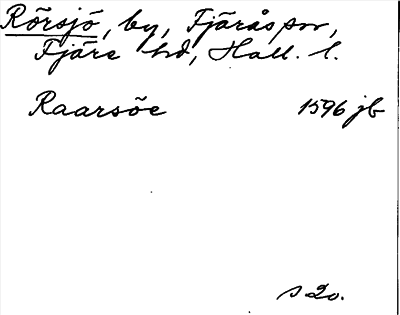 Rörsjö, by, Fjärås sn,
Fjäre hd, Hall. l.
Raarsöe 1596 jb
s 20.